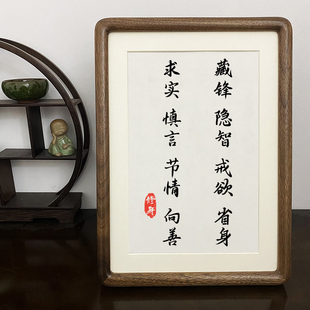 藏锋 隐智 戒欲 省身
求实 慎言 节情 向善
修身